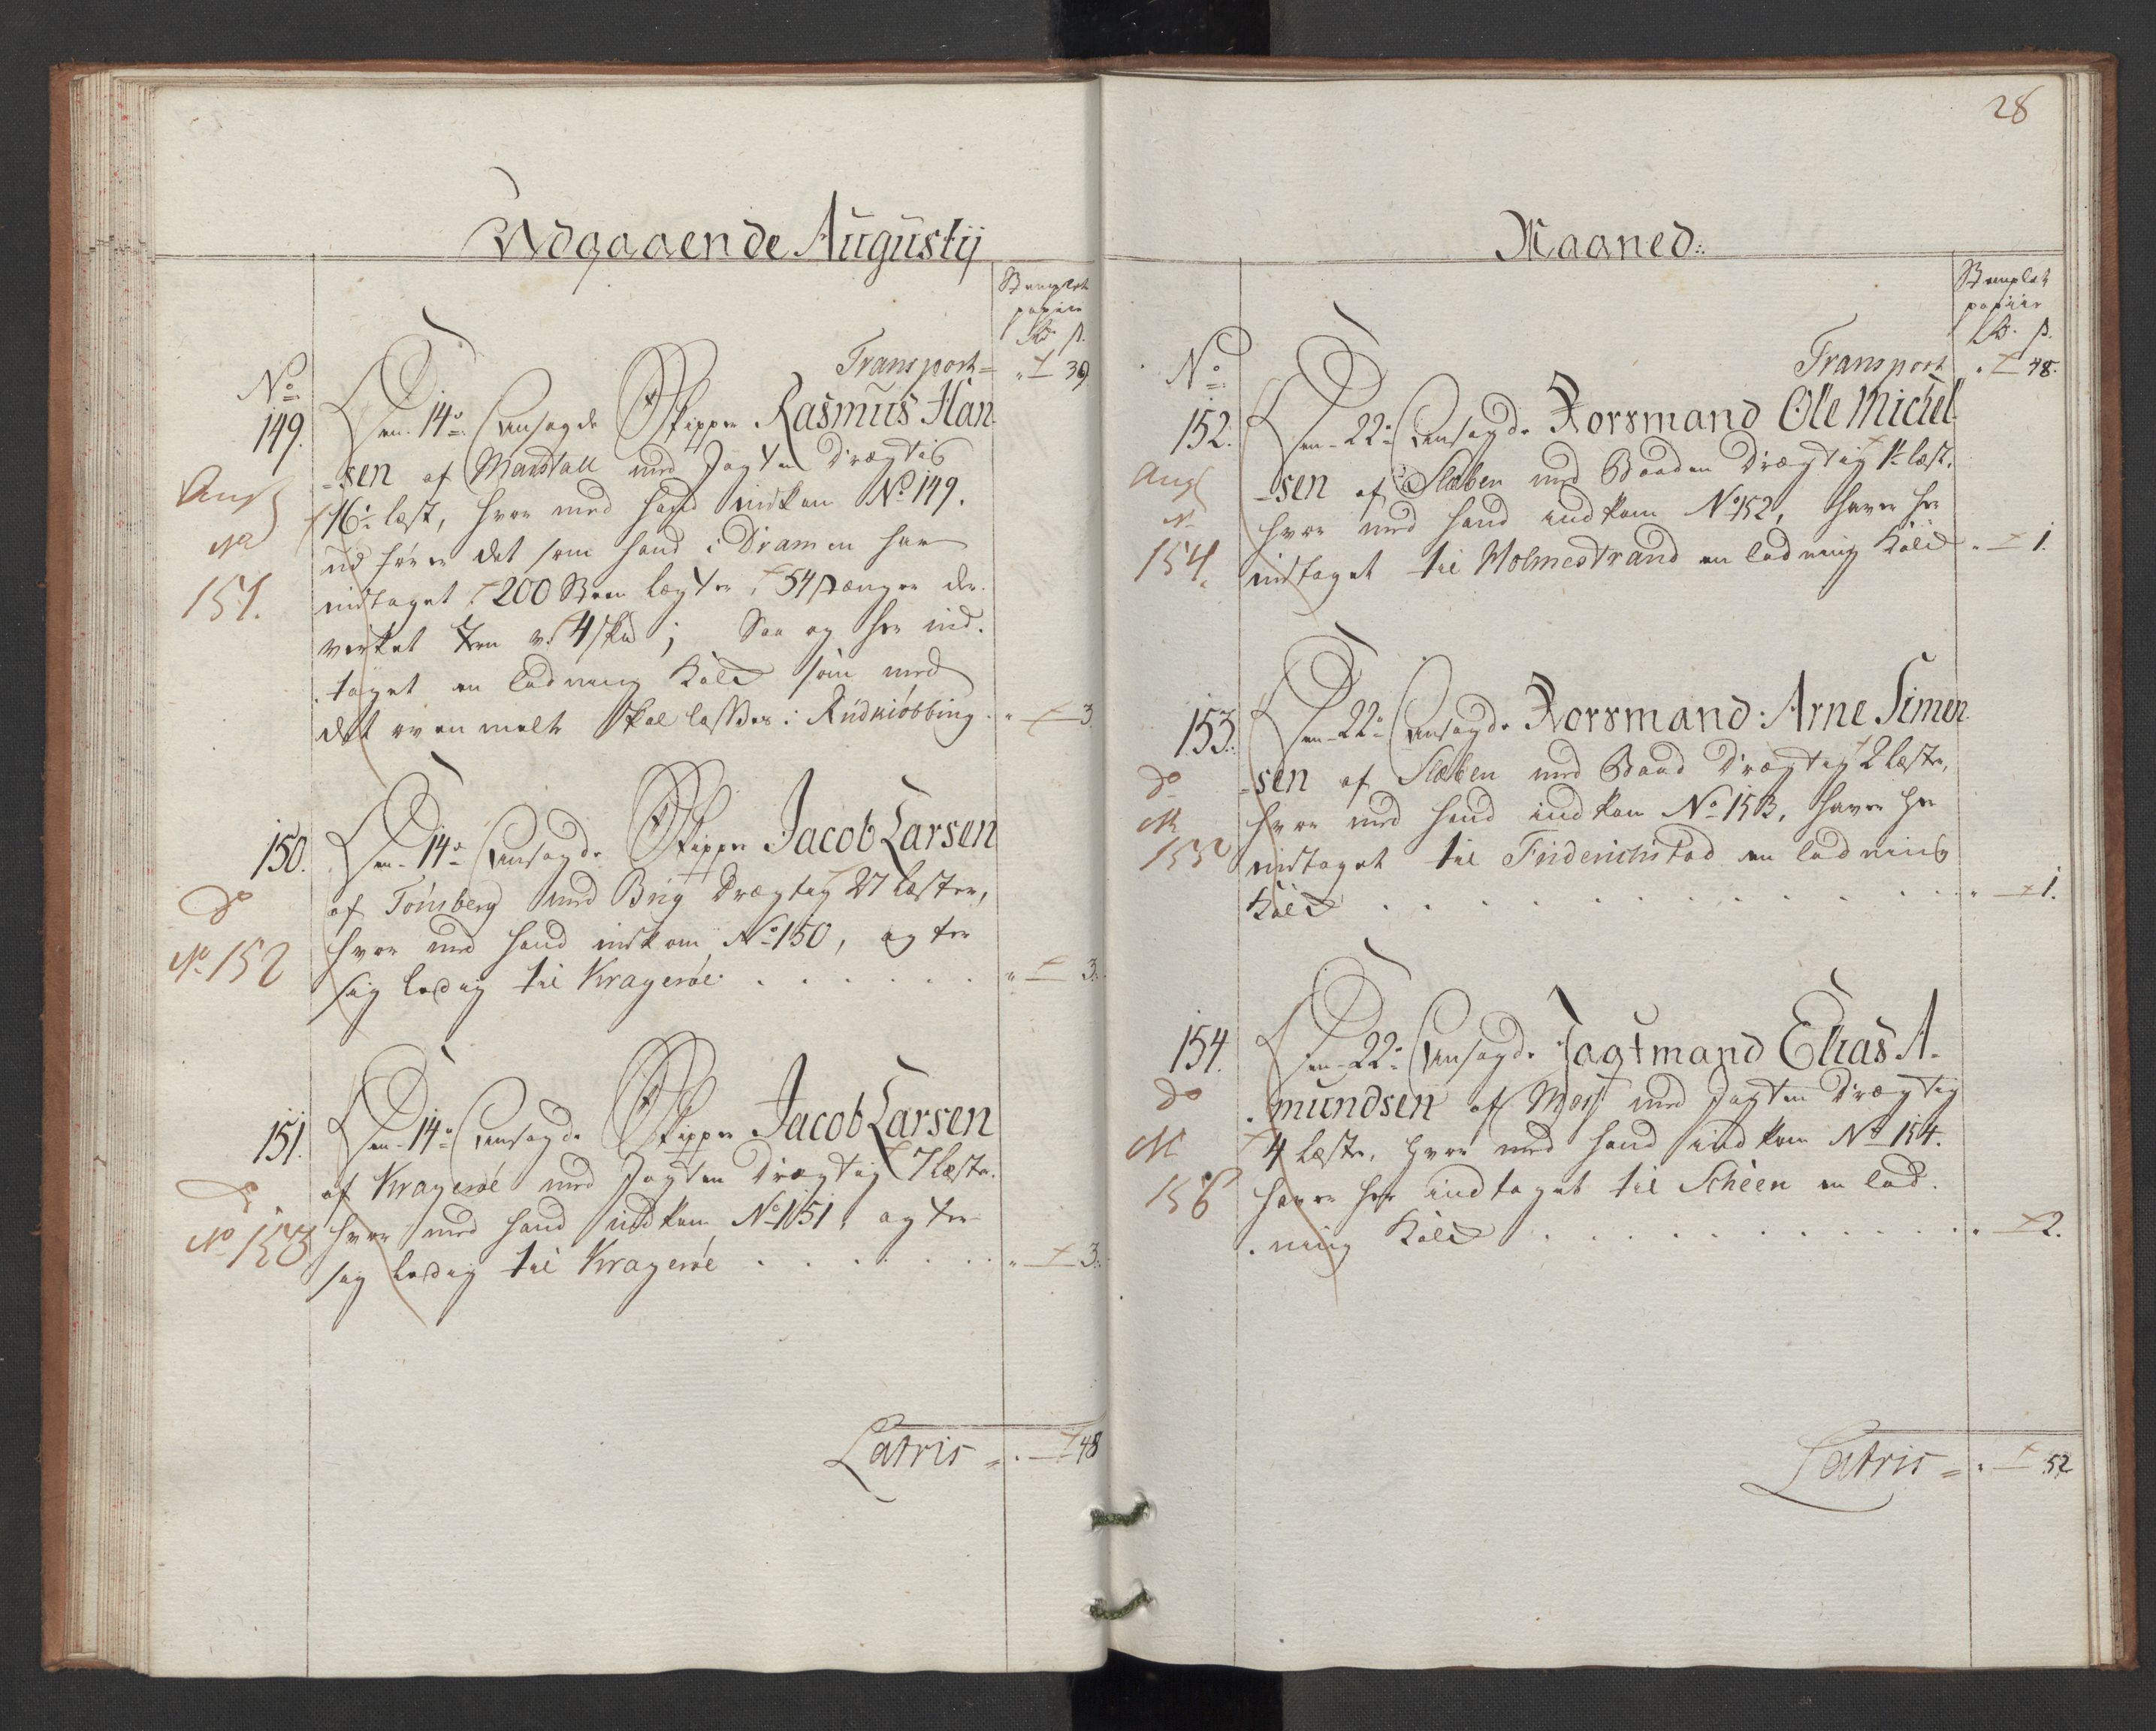 Udgaaende Augustij
Stemplet
papiir
Rd. ß.
Transport = " — 39
No
149. Den 14de Ansagde Skipper Rasmus Han
-sen af Marstall med Jagten drægtig
16 1/2 læst, hvor med hand indkom No 149.
udfører det som hand i Dramen har
indtaget 200 Sten lægter, 54
verket v. 4 ; Saa og her ind-
taget en ladning Kald som med
det ovenmelte skal losses i Rudkiöbbing . " — 3
Aug
No
151.
150. Den 14de Ansagde Skipper Jacob Larsen
af Tönsberg med Brig drægtig 27 læster,
hvor med hand indkom No 150, agter
sig ledig til Krageröe . . . . . . " — 3.
do
No 152
151. Den 14de Ansagde Skipper Jacob Larsen
af Krageröe med Jagten drægtig 7 læster.
hvor med hand indkom No 151, agter
sig ledig til Krageröe . . . . . . " — 3.
do
No 153
Latris = . — 48
28
Maaned:
Stemplet
papiir
Rd. ß.
Transport . — 48.
No
152. Den 22de Ansagde Forsmand Ole Michel
-sen af Slæben med Baaden drægtig 1 1/2 læst,
hvor med hand indkom No 152, haver her
indtaget til Holmestrand en ladning Kald " — 1.
Aug
N
154.
153. Den 22de Ansagde Forsmand Arne Simen
-sen af Slæben med Baad drægtig 2 læster,
hvor med hand indkom No 153, haver her
indtaget til Friderichstad en ladning
Kald . . . . . . . . . . . " — 1.
do
No
155
154. Den 22de Ansagde Jagtmand Elias A-
mundsen af Moss med Jagten drægtig
4 læster, hvor med hand indkom No 154.
haver her indtaget til Schéen en lad-
ning Kald . . . . . . . . . . " — 2.
do
No
156
Latris = " — 52